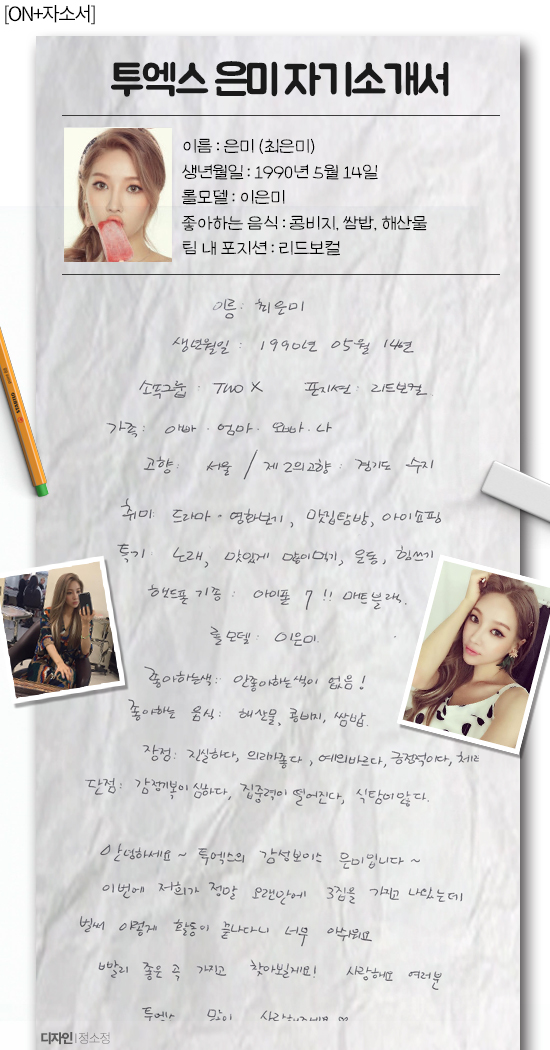 [ON+자소서]
투엑스 은미 자기소개서
이름 : 은미 (최은미)
생년월일 : 1990년 5월 14일
롤모델 : 이은미
좋아하는 음식 : 콩비지, 쌈밥, 해산물
팀 내 포지션 : 리드보컬
이름 : 최은미
생년월일 : 1990년 05월 14일
소속그룹 : TWO X 포지션 : 리드보컬.
가족 : 아빠 · 엄마 · 오빠 · 나
고향 : 서울 / 제 2의고향 : 경기도 수지
취미 : 드라마 · 영화보기, 맛집탐방, 아이쇼핑
특기 : 노래, 맛있게 많이먹기, 운동, 힘쓰기
핸드폰 기종 : 아이폰 7 !! 매트블랙.
롤모델 : 이은미.
좋아하는색 : 안좋아하는색이 없음!
좋아하는 음식 : 해산물, 콩비지, 쌈밥.
장점 : 진실하다, 의리가좋다, 예의바르다, 긍정적이다,
단점 : 감정기복이 심하다, 집중력이 떨어진다, 식탐이많다.
안녕하세요~ 투엑스의 감성보이스 은미입니다~
이번에 저희가 정말 오랜만에 3집을 가지고 나왔는데
벌써 이렇게 활동이 끝나다니 너무 아쉬워요
빨리 좋은 곡 가지고 찾아뵐게요! 사랑해요 여러분
투엑스 많이
디자인 | 정소정